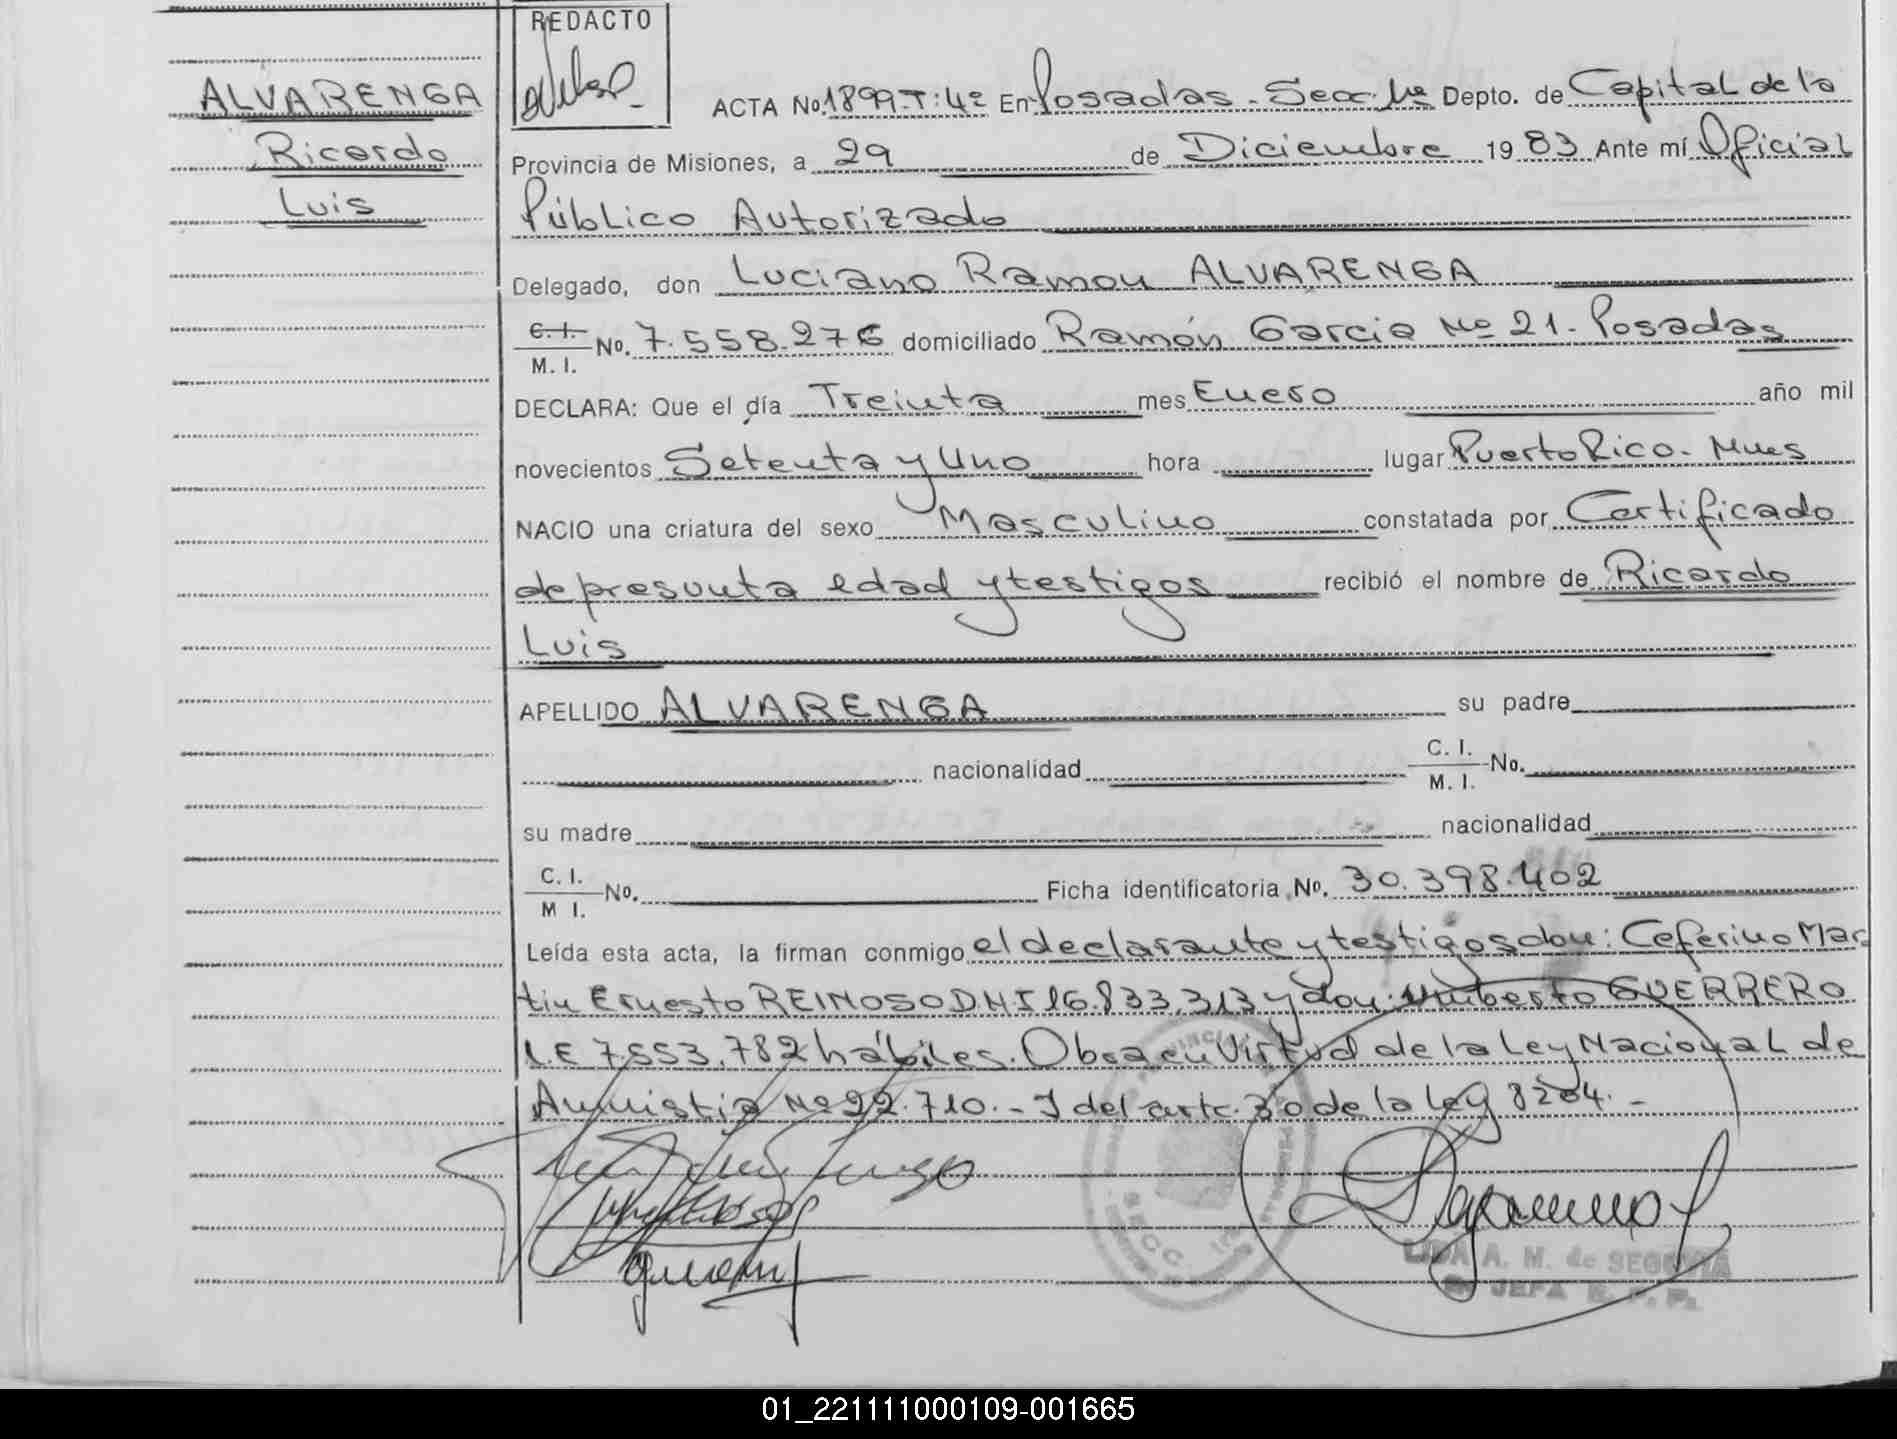 REDACTO
ALVARENGA
Ricardo
Luis
ACTA No. 1899-T:4º En Posadas - Secc. 1ª Depto. de Capital de la
Provincia de Misiones, a 29 de Diciembre 1983 Ante mí Oficial
Público Autorizado
Delegado, don Luciano Ramon ALVARENGA
C. I.
M. I. No. 7.558.276 domiciliado Ramón Garcia Nº 21- Posadas
DECLARA: Que el día Treinta mes Enero año mil
novecientos Setenta y Uno hora lugar Puerto Rico - Mnes
NACIO una criatura del sexo Masculino constatada por Certificado
de presunta edad y testigos recibió el nombre de Ricardo
Luis
APELLIDO ALVARENGA su padre
nacionalidad C. I.
M. I. No.
su madre nacionalidad
C. I.
M I. No. Ficha identificatoria No. 30.398.402
Leída esta acta, la firman conmigo el declarante y testigos don: Ceferino Mar
tin Ernesto REINOSO DNI 16.833.313 y don: Umberto GUERRERO
L.E 7.553.782 hábiles. Obra en Virtud de la Ley Nacional de
Amnistia Nº 22.710.- Y del artc. 30 de la ley 8204. -
LIDA A. M. de SEGOVIA
JEFA
01_221111000109-001665